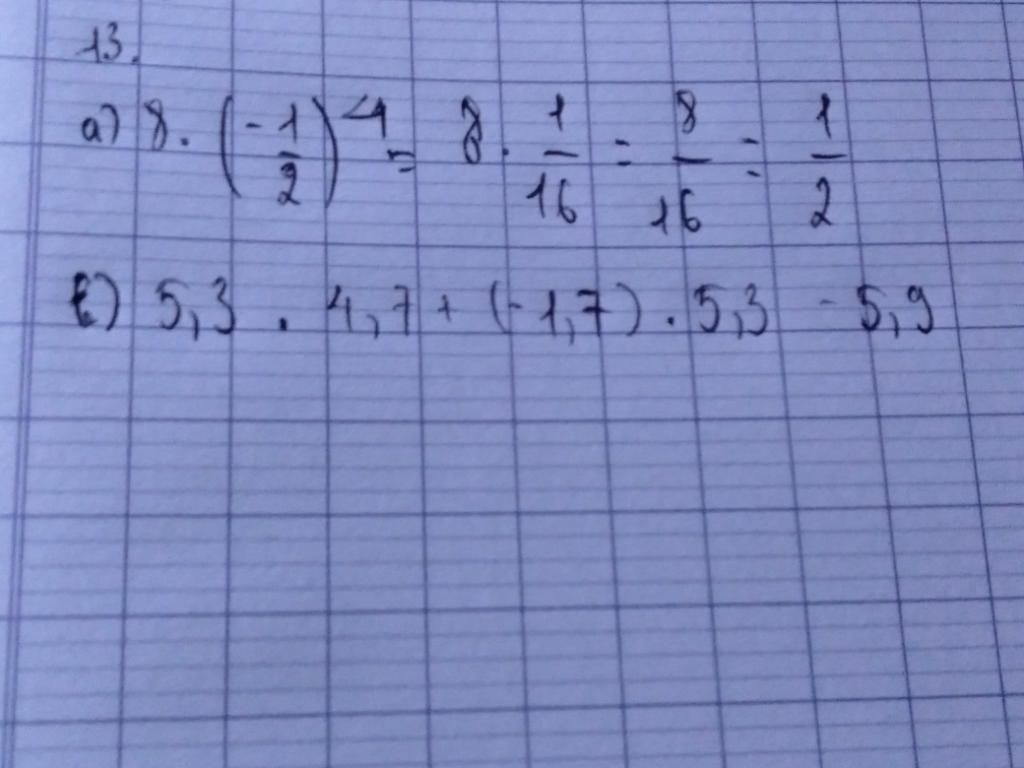 13.
a) 8 · (-1/2)^4 = 8 · 1/16 = 8/16 = 1/2
b) 5,3 · 4,7 + (-1,7) · 5,3 - 5,9